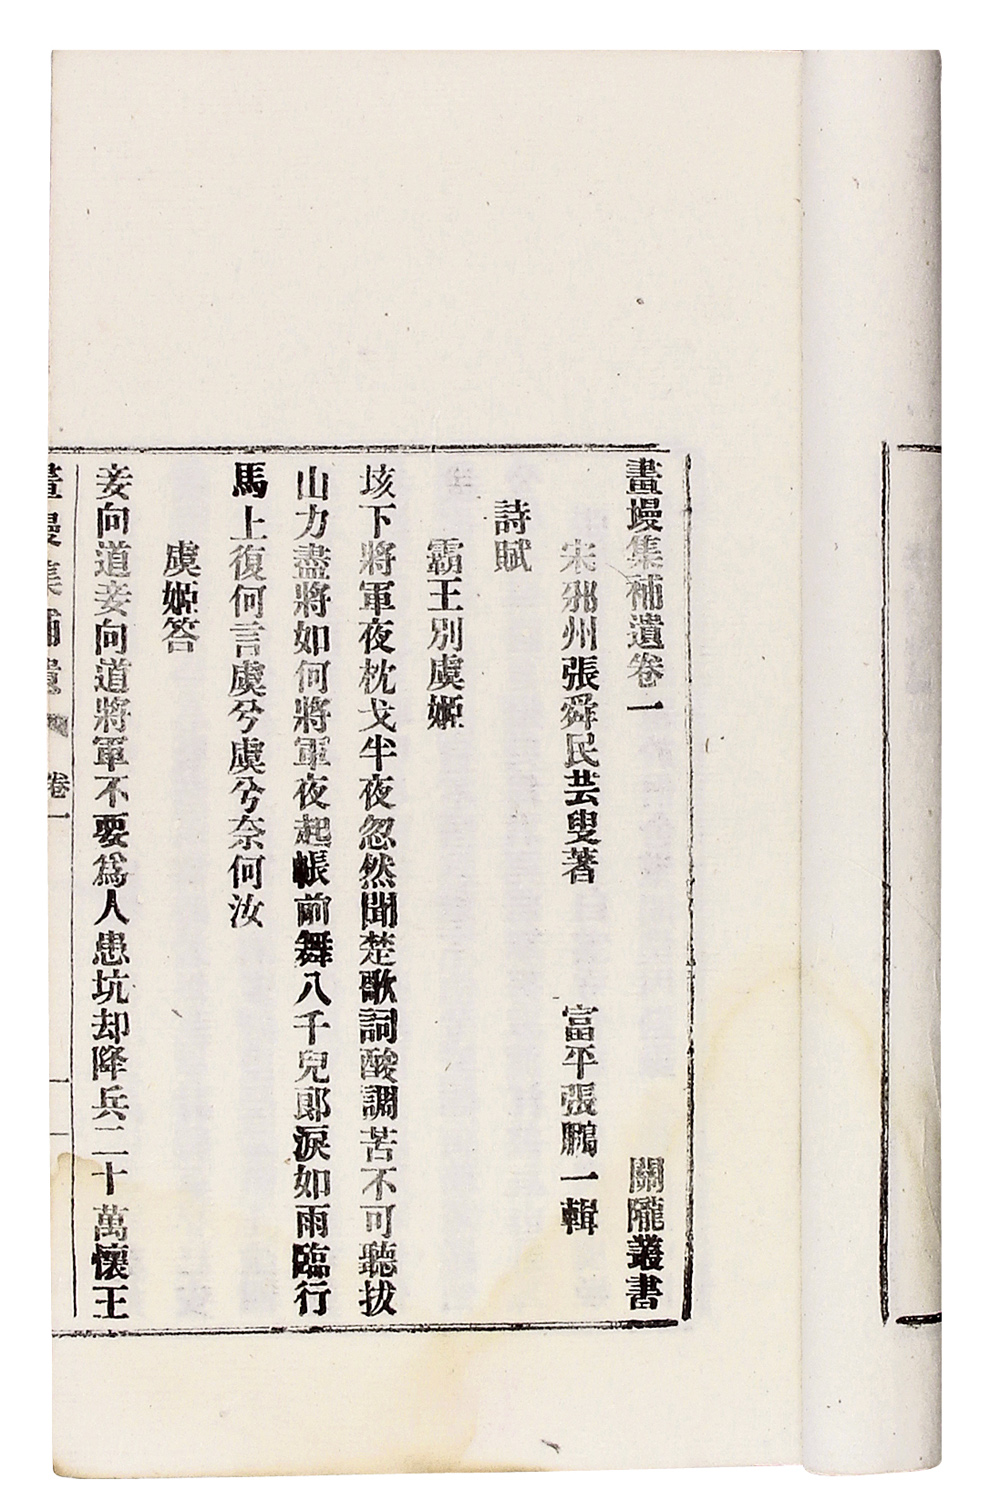 畫墁集補遺卷一　關隴叢書
宋邠州張舜民芸叟著　富平張鵬一輯
詩賦
霸王別虞姬
垓下將軍夜枕戈半夜忽然聞楚歌詞酸調苦不可聽拔
山力盡將如何將軍夜起帳前舞八千兒郎淚如雨臨行
馬上復何言虞兮虞兮奈何汝
虞姬答
妾向道妾向道將軍不要爲人患坑却降兵二十萬懷王
畫墁集補遺　卷一　一